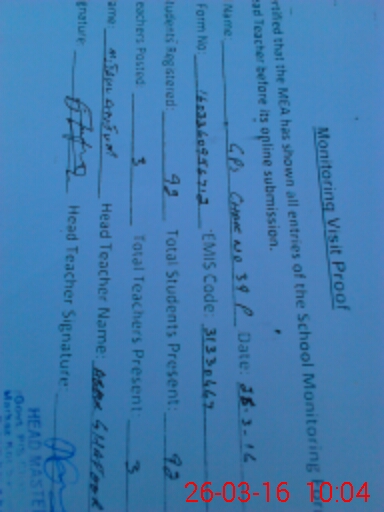 Monitoring Visit Proof
rtified that the MEA has shown all entries of the School Monitoring For
ead Teacher before its online submission.
Name: GPS Chak No 39 P Date: 26-3-16
Form No: EMIS Code: 31330467
tudents Registered: 92 Total Students Present: 92
eachers Posted: 3 Total Teachers Present: 3
ame: Head Teacher Name: GHAFOOR
gnature: Head Teacher Signature:
HEAD MASTE
Govt
26-03-16 10:04